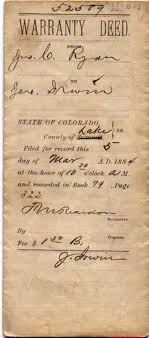 52589
WARRANTY DEED.
FROM
Jno. C. Ryan
TO
Geo. Irwin
STATE OF COLORADO,
County of Lake
Filed for record this 5
day of Mar A.D. 1884
at the hour of 10 30 o'clock A M.
and recorded in Book 74, Page
322
Recorder.
By
Deputy.
Fee $ 1.50